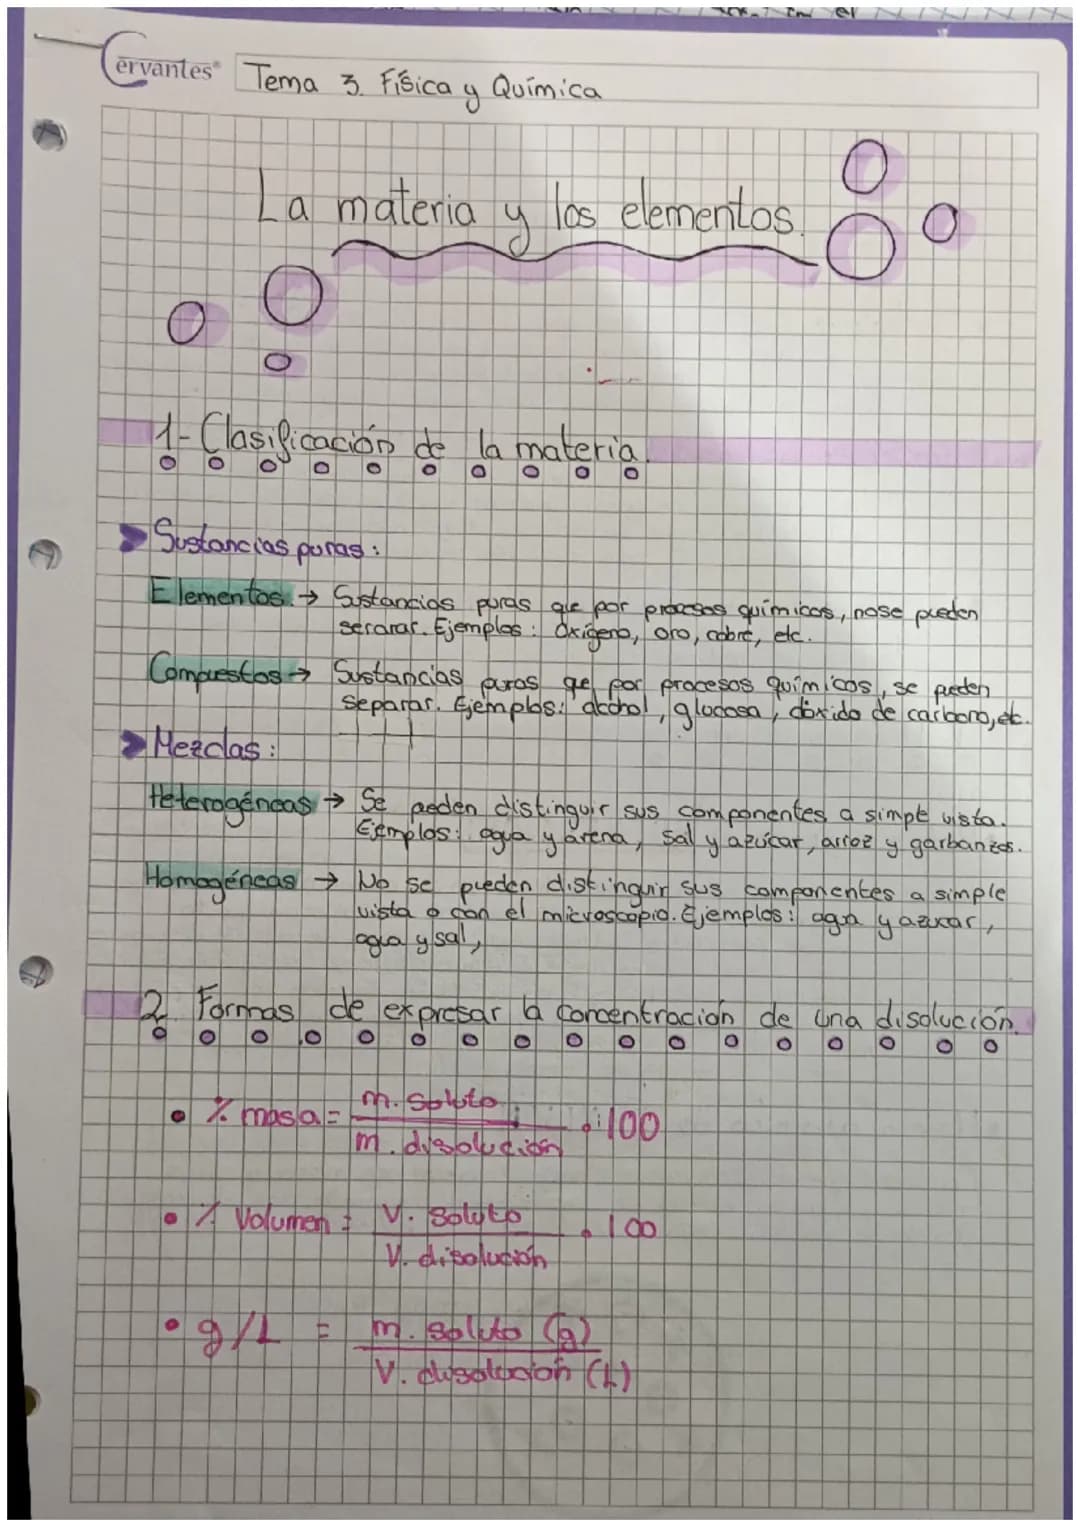 en el
Cervantes®
Tema 3. Física y Química
La materia y los elementos.
1- Clasificación de la materia.
Sustancias puras:
Elementos. → Sustancias puras que por procesos químicos, nose pueden
serarar. Ejemplos: Oxígeno, oro, cobre, etc.
Compuestos → Sustancias puras que por procesos químicos, se pueden
separar. Ejemplos: alcohol, glucosa, dióxido de carbono, etc.
Mezclas:
Heterogéneas → Se pueden distinguir sus componentes a simple vista.
Ejemplos: agua y arena, sal y azúcar, arroz y garbanzos.
Homogéneas → No se pueden distinguir sus componentes a simple
vista o con el microscopio. Ejemplos: agua y azucar,
agua y sal,
2. Formas de expresar la concentración de una disolución.
• % masa = m. soluto
m. disolución · 100
• % Volumen = V. soluto
V. disolución · 100
• g/L = m. soluto (g)
V. disolución (L)